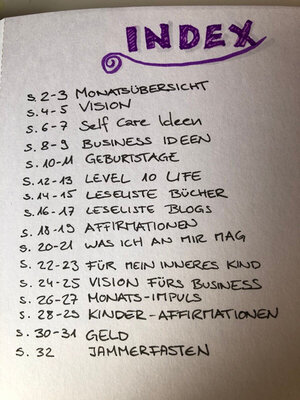 INDEX
S. 2-3 MONATSÜBERSICHT
S. 4-5 VISION
S. 6-7 Self Care Ideen
S. 8-9 BUSINESS IDEEN
S. 10-11 GEBURTSTAGE
S. 12-13 LEVEL 10 LIFE
S. 14-15 LESELISTE BÜCHER
S. 16-17 LESELISTE BLOGS
S. 18-19 AFFIRMATIONEN
S. 20-21 WAS ICH AN MIR MAG
S. 22-23 FÜR MEIN INNERES KIND
S. 24-25 VISION FÜRS BUSINESS
S. 26-27 MONATS-IMPULS
S. 28-29 KINDER-AFFIRMATIONEN
S. 30-31 GELD
S. 32 JAMMERFASTEN